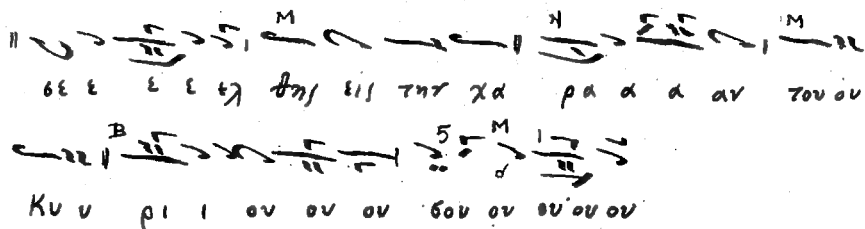 δε ε ε ε εχ θης εις την χα ρα α α αν του ου
Κυ υ ρι ι ου ου ου σου ου ου ου ου